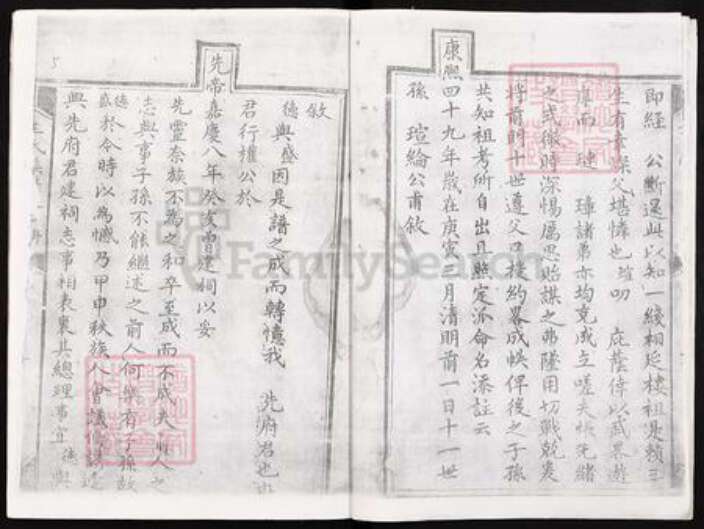 即經 公斷還此以知一綫相延棲祖是賴三
生有幸深父堪憐也瑄叨 庇蔭倖以武畧遊
庠而 璉 璋諸弟亦均克成立嗟夫悵先緒
之式微時深惕厲思貽謀之弗墜用切戰兢爰
將前明十世遵父口授約畧成帙俾後之子孫
共知祖考所自出且照定派命名添註云
康熙四十九年歲在庚寅三月清明前一日十一世
孫 瑄綸公甫敘
敘
德 與盛因是譜之成而轉憶我 先府君也
君行權公於
先帝嘉慶八年癸亥而建祠以妥
先靈奈族不為之和卒至成而不成夫前人之
志與事子孫不能繼述之前人何樂有子孫故
德盛於今時以為憾乃甲申秋族人會議修譜
與先府君建祠志事相表裏其總理事宜 德與
FamilySearch
5